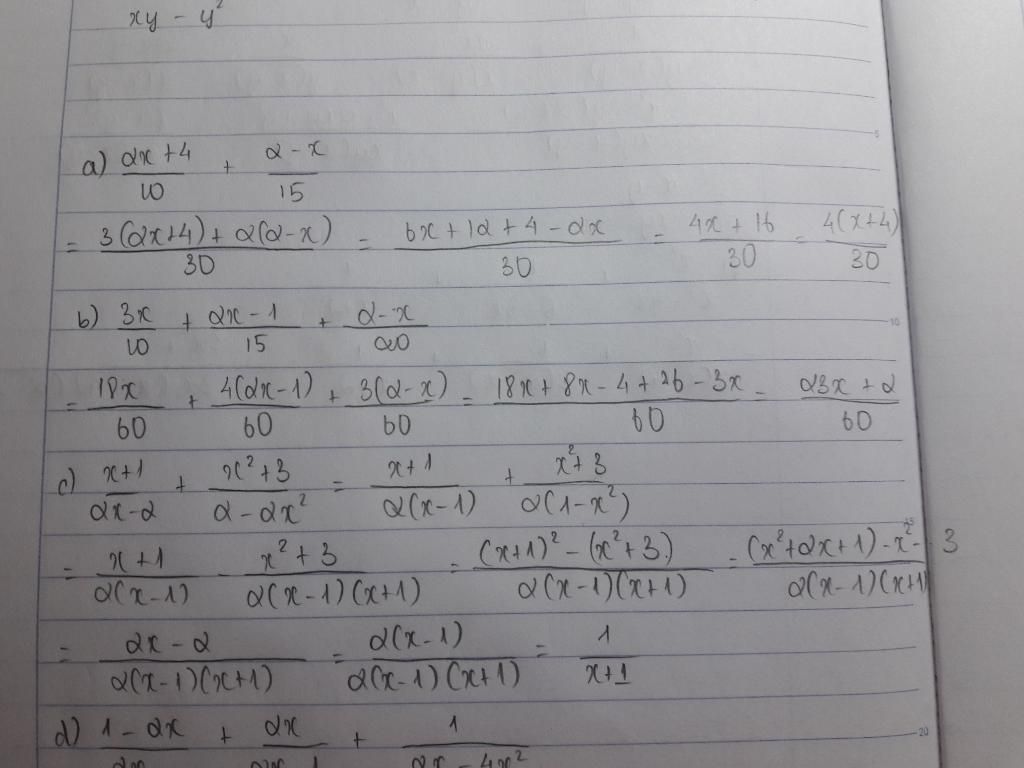 xy - y²
a) (2x+4)/10 + (2-x)/15
= (3(2x+4) + 2(2-x))/30 = (6x+12+4-2x)/30 = (4x+16)/30 = (4(x+4))/30
b) 3x/10 + (2x-1)/15 + (2-x)/20
= 18x/60 + (4(2x-1))/60 + (3(2-x))/60 = (18x+8x-4+26-3x)/60 = (23x+2)/60
c) (x+1)/(2x-2) + (x²+3)/(2-2x²) = (x+1)/(2(x-1)) + (x²+3)/(2(1-x²))
= (x+1)/(2(x-1)) - (x²+3)/(2(x-1)(x+1)) = ((x+1)²-(x²+3))/(2(x-1)(x+1)) = ((x²+2x+1)-x²-3)/(2(x-1)(x+1))
= (2x-2)/(2(x-1)(x+1)) = (2(x-1))/(2(x-1)(x+1)) = 1/(x+1)
d) (1-2x)/2x + 2x/(2x-1) + 1/(2x-4x²)